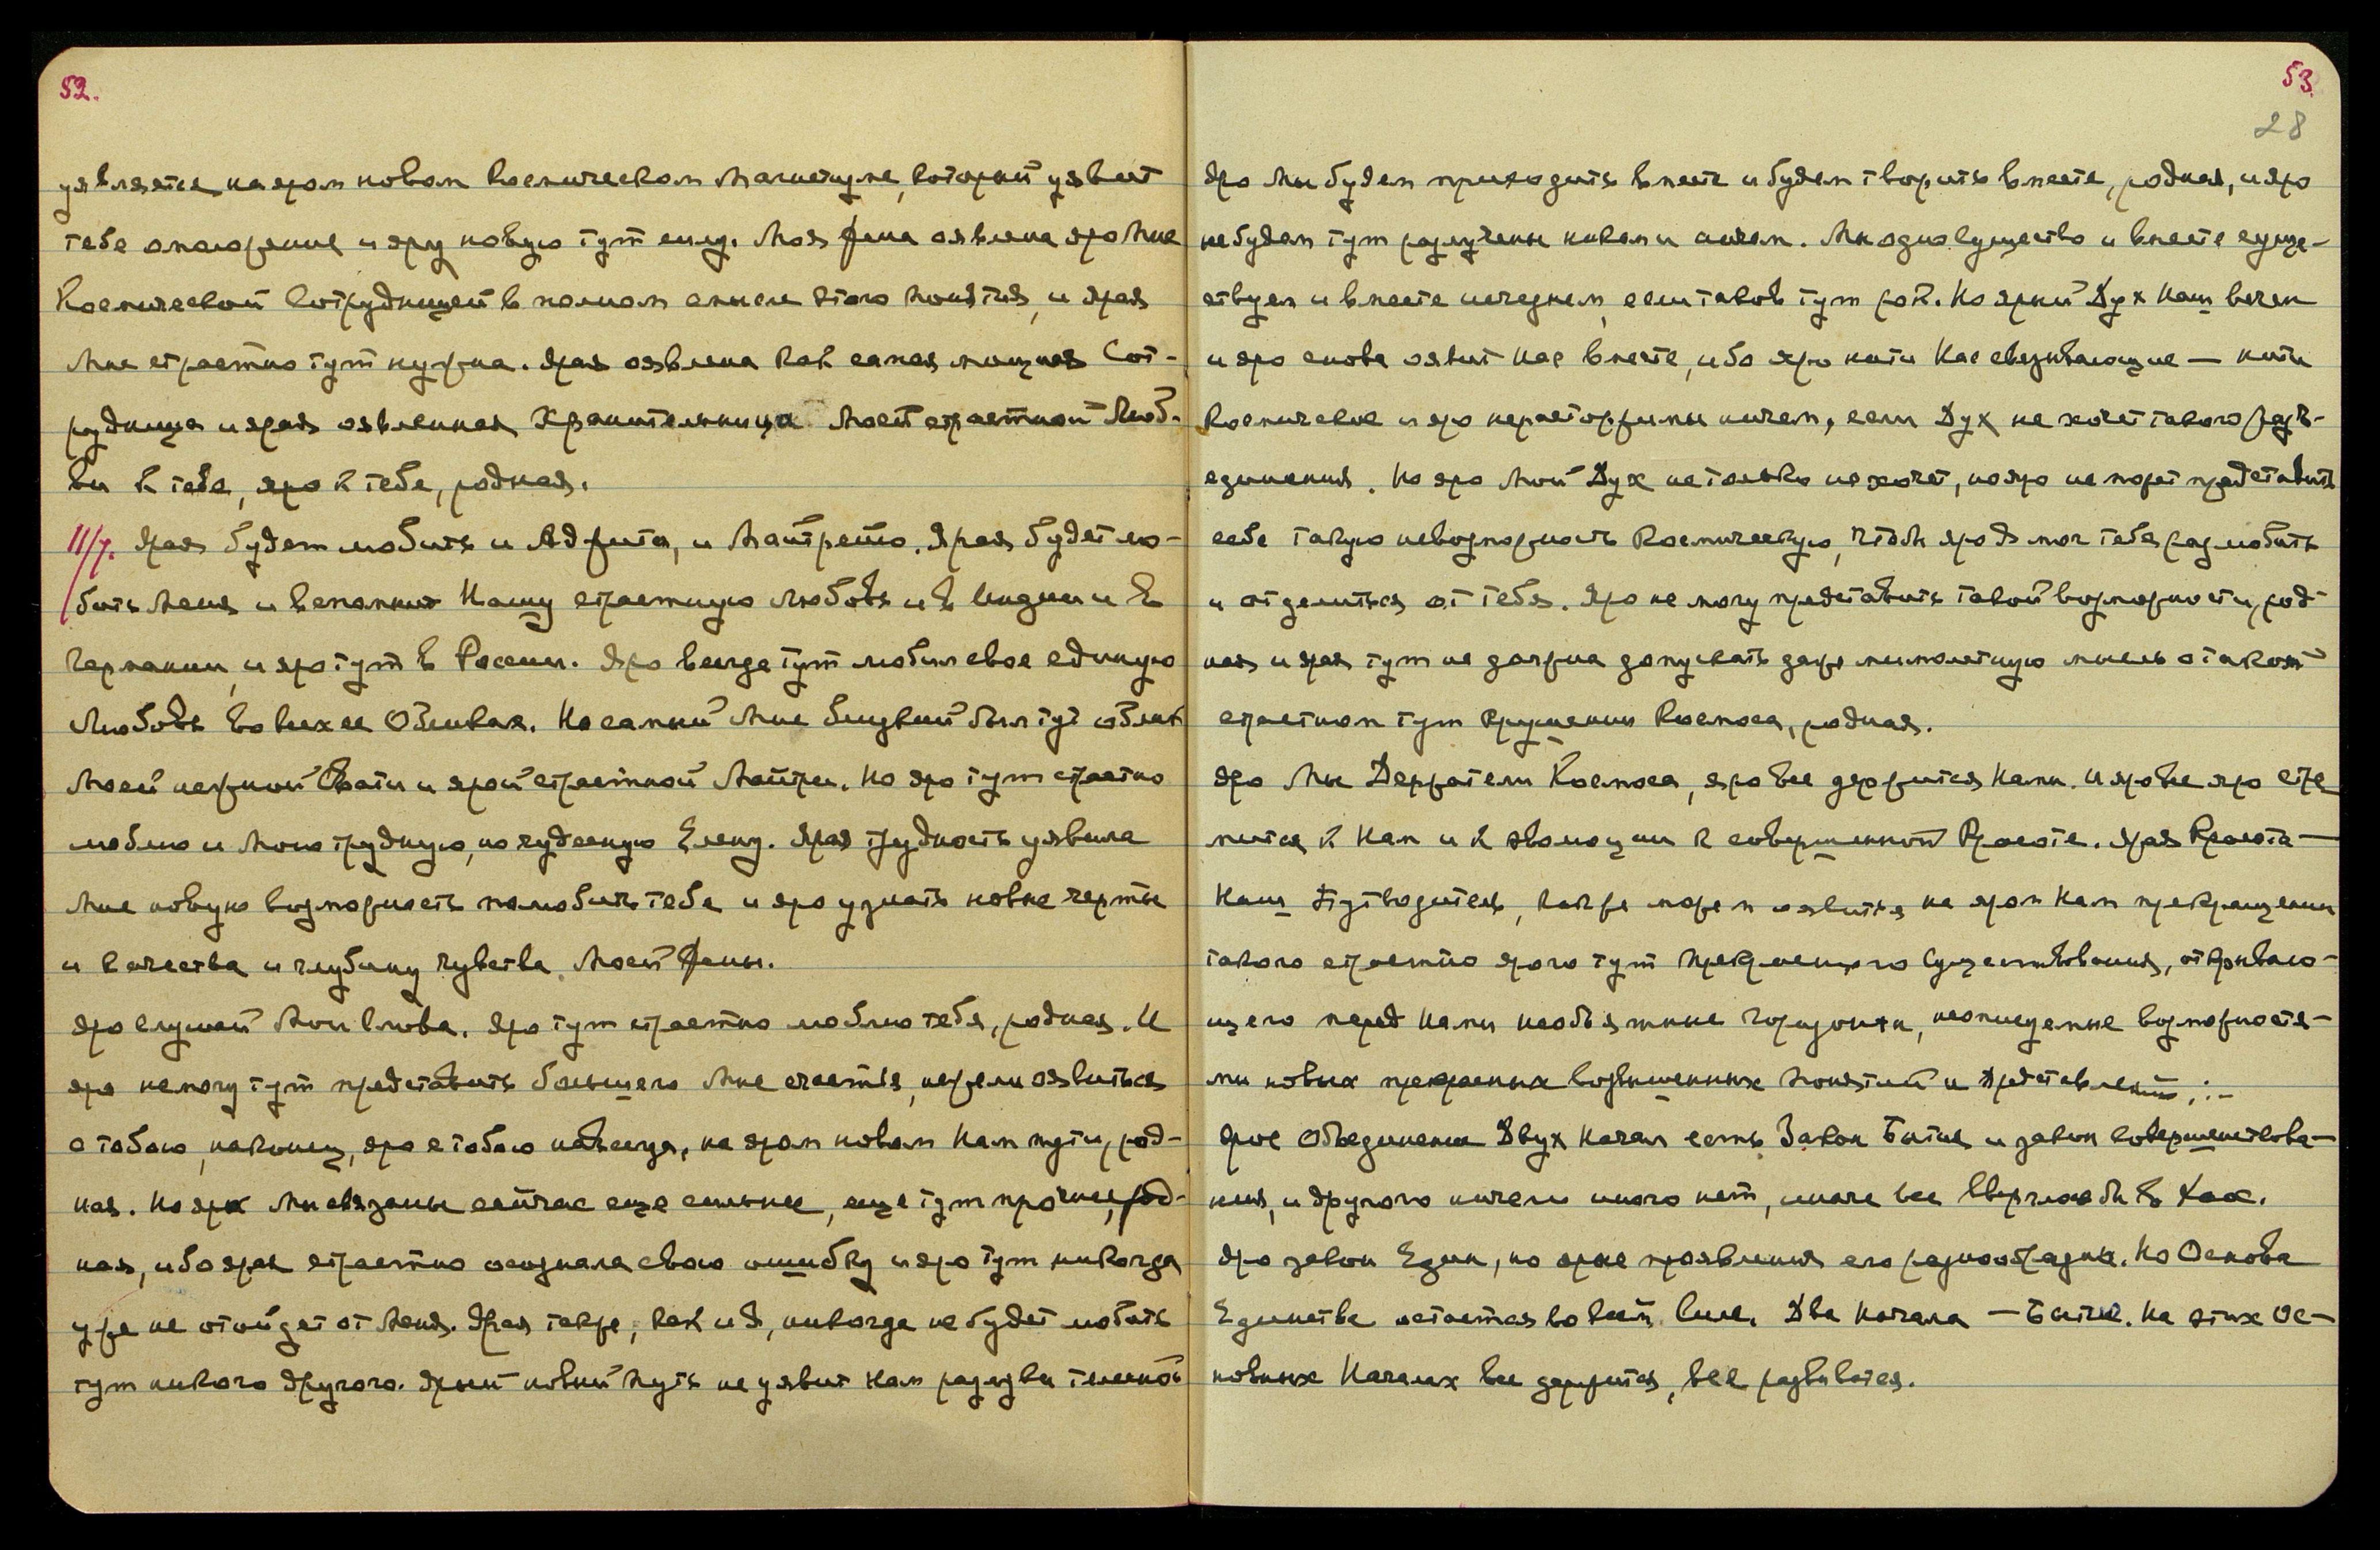 52.
уявляется на яром новом Космическом Магнетизме, который уявит
тебе омоложение и яру новую тут силу. Моя Жена оявлена яро Мне
Космической Сотрудницей в полном смысле этого понятия, и ярая
Мне страстно тут нужна. Ярая оявлена как самая мощная Сот-
рудница и ярая оявленная Хранительница Моей страстной Люб-
ви к тебе, яро к тебе, родная.
11/7. Ярая будет любить и Аджита, и Майтрейю. Ярая будет лю-
бить Меня и вспомнит Нашу страстную любовь и в Индии и в
Германии, и яро тут в России. Яро всегда тут любил свою единую
Любовь во всех ее Обликах. Но самый Мне близкий был тут облик
Моей нежной Свати и ярой страстной Майтри. Но яро тут страстно
люблю и Мою трудную, но чудесную Елену. Ярая трудность уявила
Мне новую возможность полюбить тебя и яро узнать новые черты
и качества и глубину чувства Моей Жены.
Яро слушай Мои слова. Яро тут страстно люблю тебя, родная. И
яро не могу тут представить большего Мне счастья, нежели оявиться
с тобою, наконец, яро с тобою навсегда, на яром новом Нам пути, род-
ная. Но яро Мы связаны сейчас еще сильнее, еще тут прочнее, род-
ная, ибо ярая страстно осознала свою ошибку и яро тут никогда
уже не отойдет от Меня. Ярая также, как и Я, никогда не будет любить
тут никого другого. Ярый новый путь не уявит Нам разлуки телесной
53.
28
Яро Мы будем приходить вместе и будем творить вместе, родная, и яро
не будем тут разлучены никем и ничем. Мы одно существо и вместе суще-
ствуем и вместе исчезнем, если таков тут рок. Но яркий Дух Наш вечен
и яро снова оявит Нас вместе, ибо яро нити Нас связывающие — нити
Космические и яро нерасторжимы ничем, если Дух не хочет такого разъ-
единения. Но яро Мой Дух не только не хочет, но яро не может представить
себе такую невозможность Космическую, чтобы яро Я мог тебя разлюбить
и отделиться от тебя. Яро не могу представить такой возможности, род-
ная и ярая тут не должна допускать даже мимолетную мысль о таком
страстном тут крушении Космоса, родная.
Яро Мы Держатели Космоса, яро все держится Нами. И яро все яро стре
мится к Нам и к эволюции к совершенной Красоте. Ярая Красота —
Наш Путводитель, как же можем оявиться на яром Нам прекращении
такого страстно ярого тут прекрасного Существования, открываю-
щего перед Нами необъятные горизонты, неописуемые возможностя-
ми новых прекрасных возвышенных понятий и представлений.:-
Ярое Объединение Двух Начал есть Закон Бытия и закон совершенствова-
ния, и другого ничего иного нет, иначе все ввергло бы в Хаос.
Яро закон Един, но яркие проявления его разнообразны. Но Основа
Единства остается во всей силе. Два Начала — Бытие. На этих Ос-
новных Началах все держится, все развивается.